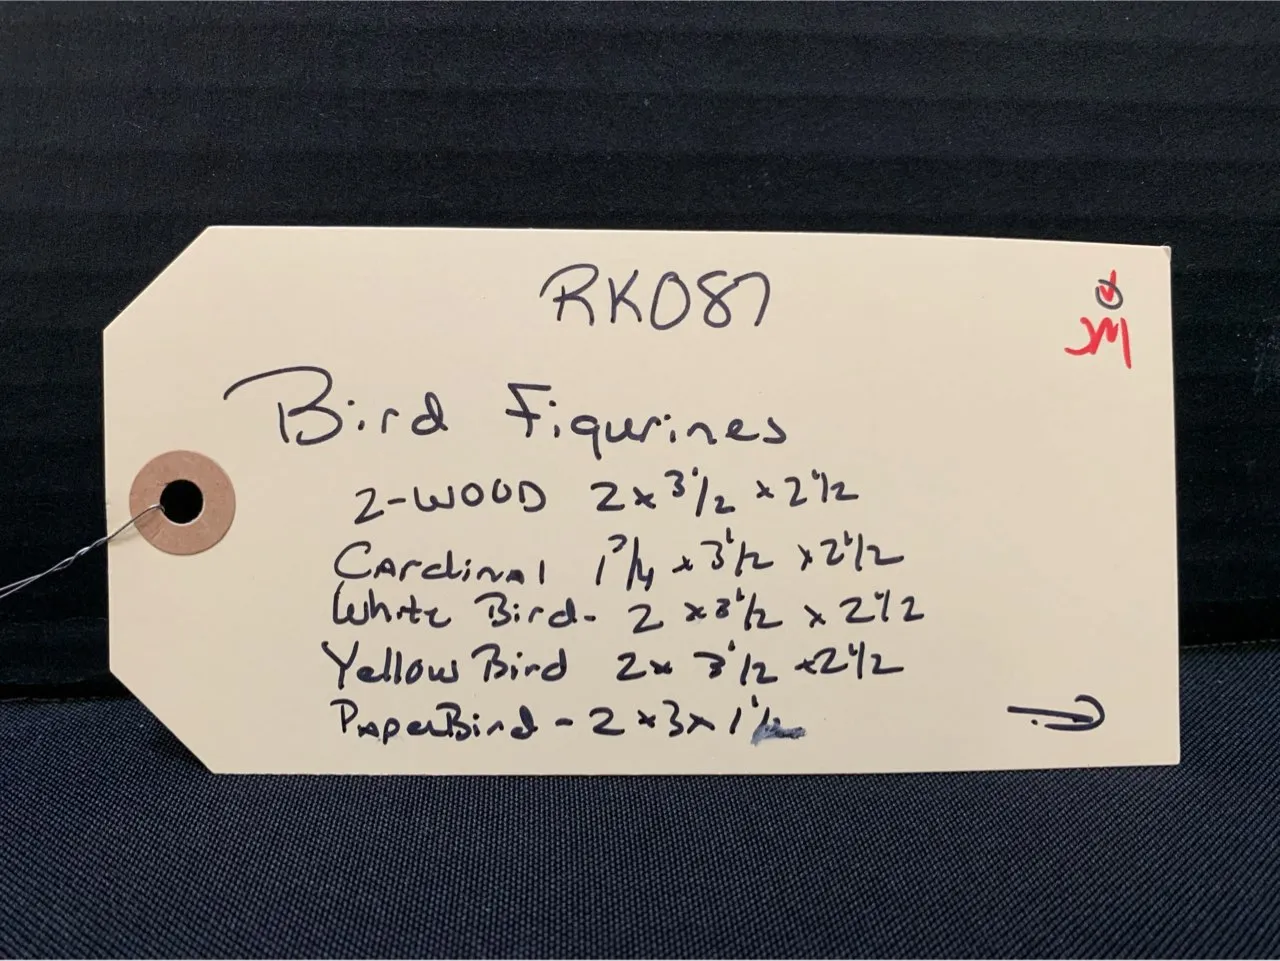 RK087
JM
Bird Figurines
2-WOOD 2 x 3 1/2 x 2 1/2
Cardinal 1 3/4 x 3 1/2 x 2 1/2
White Bird - 2 x 3 1/2 x 2 1/2
Yellow Bird 2 x 3 1/2 x 2 1/2
Paper Bird - 2 x 3 x 1 1/2